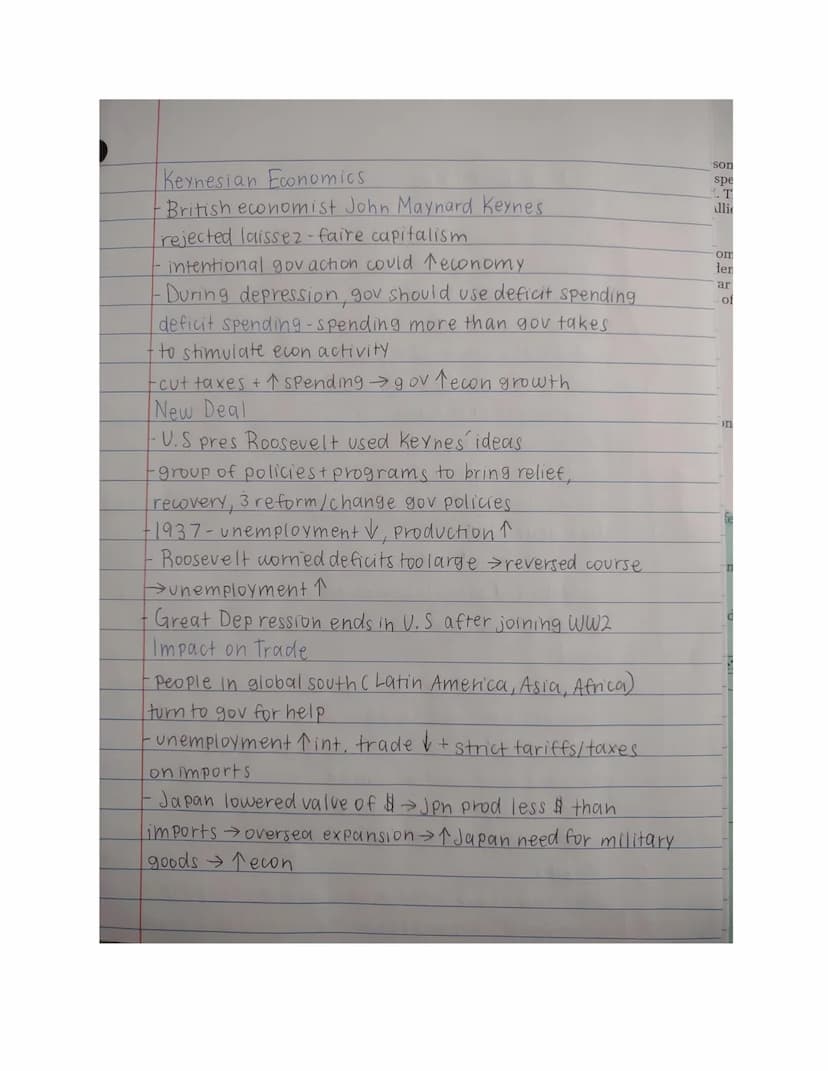 Keynesian Economics
- British economist John Maynard Keynes
rejected laissez-faire capitalism
- intentional gov action could ↑economy
- During depression, gov should use deficit spending
deficit spending - spending more than gov takes
- to stimulate econ activity
- cut taxes + ↑ spending → gov ↑econ growth
New Deal
- U.S pres Roosevelt used Keynes' ideas
- group of policies + programs to bring relief,
recovery, 3 reform/change gov policies
- 1937 - unemployment ↓, production ↑
- Roosevelt worried deficits too large → reversed course
→ unemployment ↑
- Great Depression ends in U.S after joining WW2
Impact on Trade
- people in global south (Latin America, Asia, Africa)
turn to gov for help
- unemployment ↑ int. trade ↓ + strict tariffs/taxes
on imports
- Japan lowered value of $ → Jpn prod less $ than
imports → oversea expansion → ↑ Japan need for military
goods → ↑ econ
son
spe
. T
llie
om
ar
of